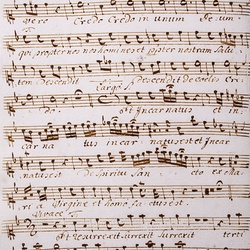 vero Credo Credo in unum Deum
qui propter nos homines et propter nostram Salu
tem Descendit Descendit de coelis Cru
Largo
Et Incarnatus et in
carna tus incar natus est et Incar
natus est de Spiritu San cto ex Ma
ri a Virgine et homo factus est.
Vivace
Et resurrexit surrexit surrexit terti